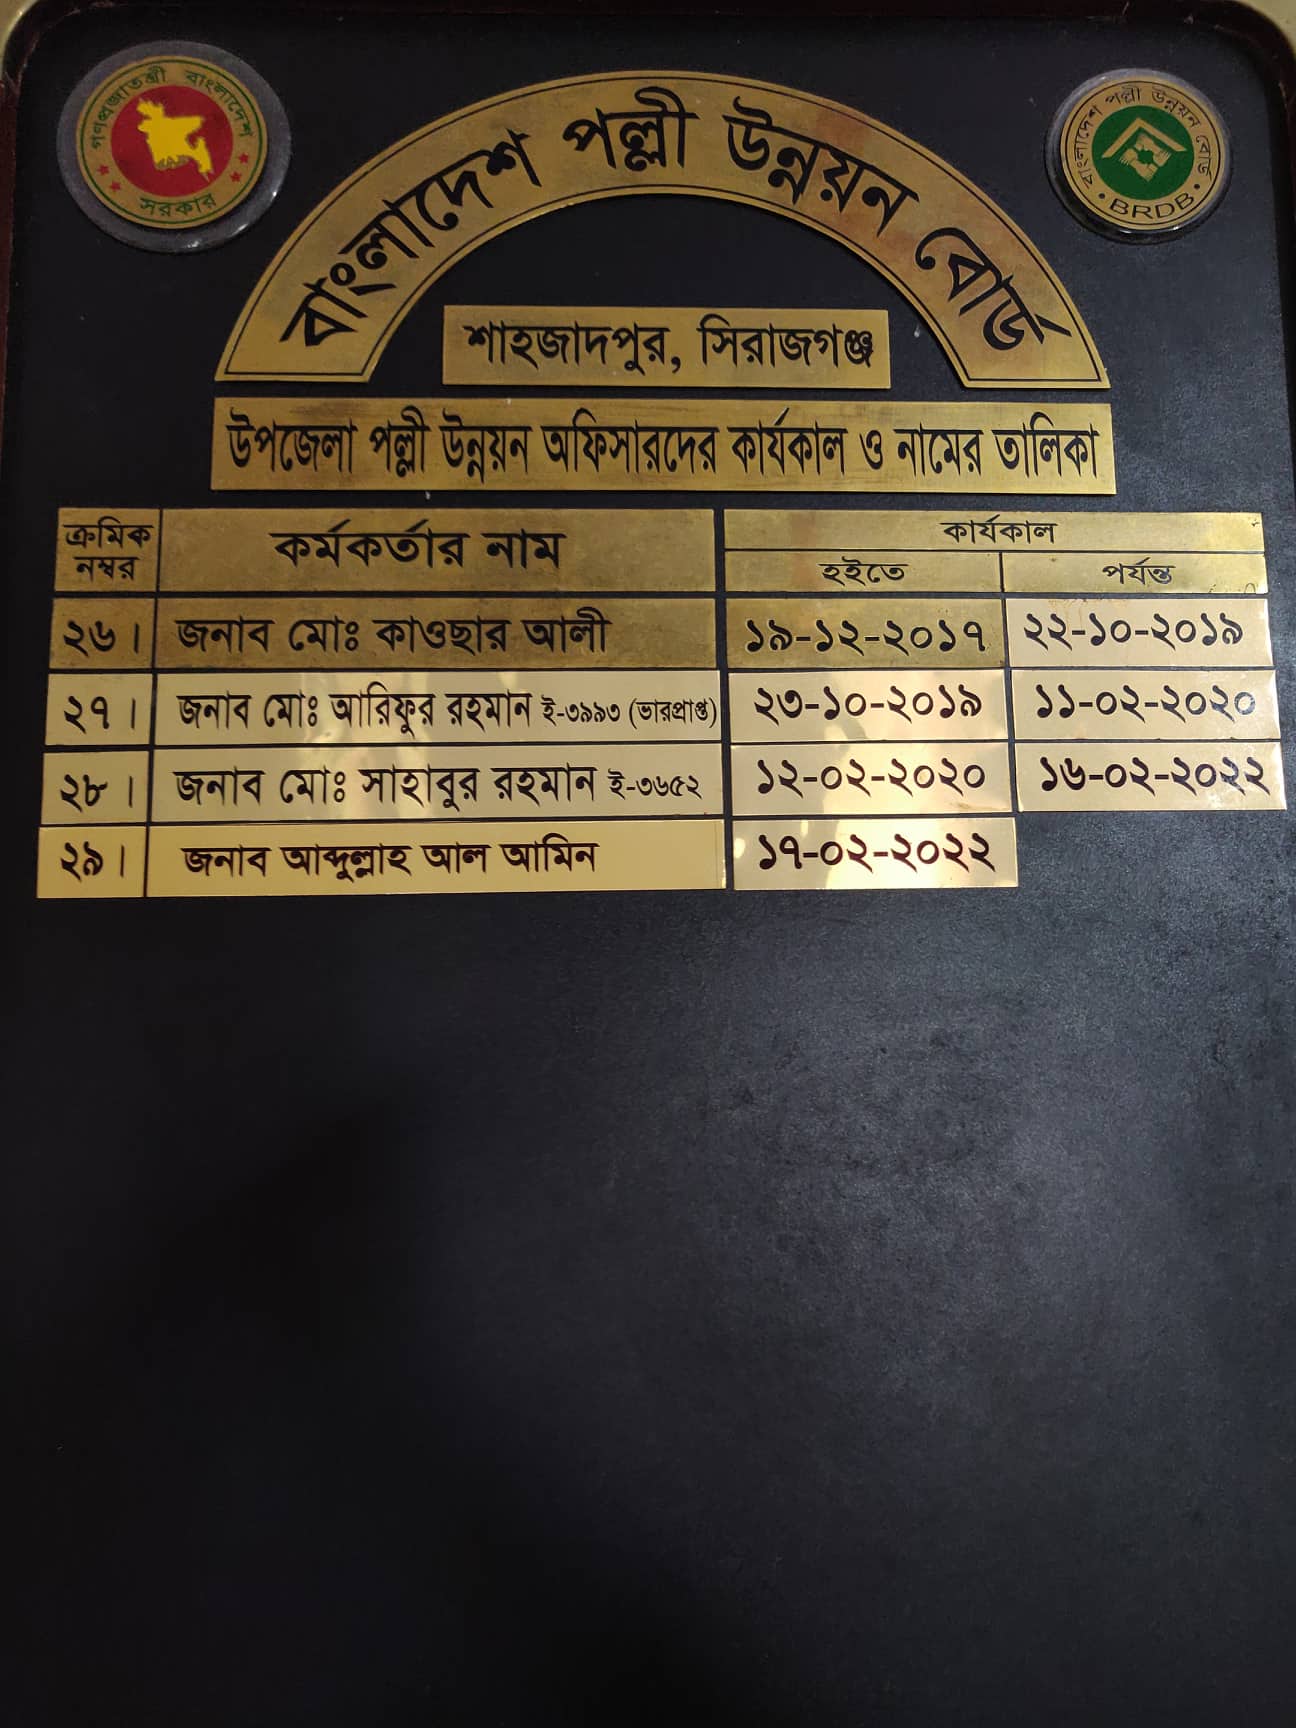 গণপ্রজাতন্ত্রী বাংলাদেশ
সরকার
বাংলাদেশ পল্লী উন্নয়ন বোর্ড
বাংলাদেশ পল্লী উন্নয়ন বোর্ড
BRDB
শাহজাদপুর, সিরাজগঞ্জ
উপজেলা পল্লী উন্নয়ন অফিসারদের কার্যকাল ও নামের তালিকা
ক্রমিক নম্বর কর্মকর্তার নাম কার্যকাল
হইতে পর্যন্ত
২৬। জনাব মোঃ কাওছার আলী ১৯-১২-২০১৭ ২২-১০-২০১৯
২৭। জনাব মোঃ আরিফুর রহমান ই-৩৯৯৩ (ভারপ্রাপ্ত) ২৩-১০-২০১৯ ১১-০২-২০২০
২৮। জনাব মোঃ সাহাবুর রহমান ই-৩৬৫২ ১২-০২-২০২০ ১৬-০২-২০২২
২৯। জনাব আব্দুল্লাহ আল আমিন ১৭-০২-২০২২